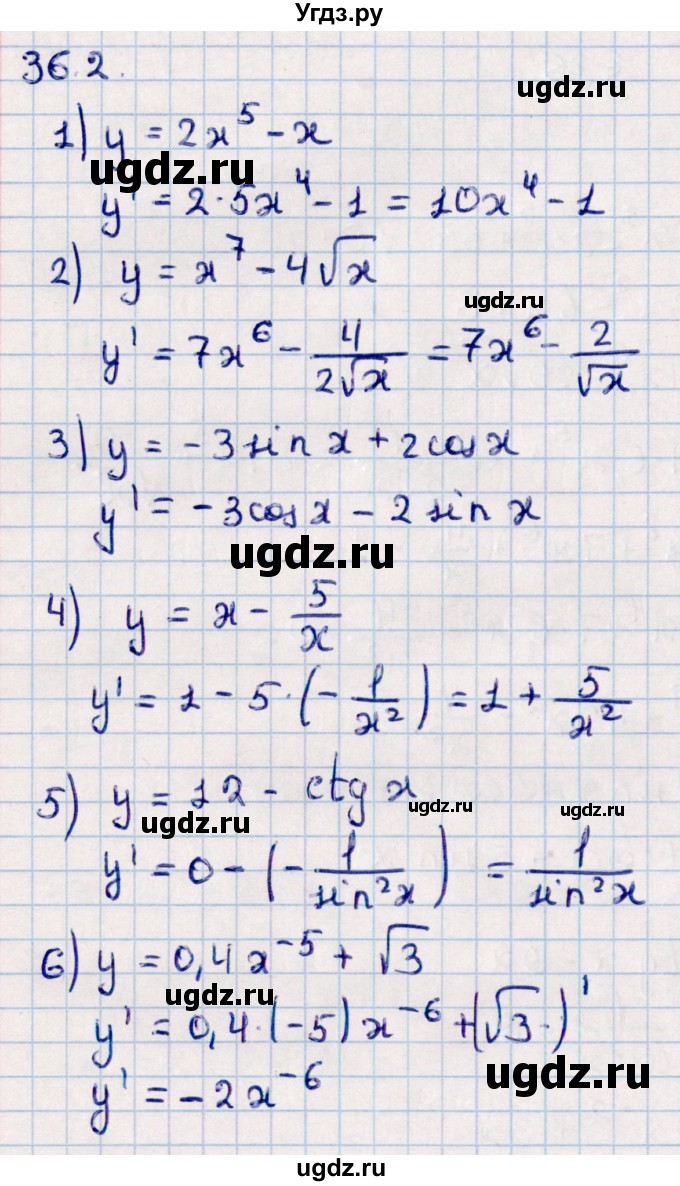 Угдз.ру
36.2.
ugdz.ru
1) y = 2x⁵ - x
ugdz.ru
y' = 2·5x⁴ - 1 = 10x⁴ - 1
2) y = x⁷ - 4√x
ugdz.ru
y' = 7x⁶ - 4/(2√x) = 7x⁶ - 2/√x
3) y = -3 sin x + 2 cos x
y' = -3 cos x - 2 sin x
ugdz.ru
4) y = x - 5/x
y' = 1 - 5·(-1/x²) = 1 + 5/x²
5) y = 12 - ctg x
ugdz.ru
ugdz.ru
ugdz.ru
y' = 0 - (-1/sin²x) = 1/sin²x
6) y = 0,4x⁻⁵ + √3
ugdz.ru
y' = 0,4·(-5)x⁻⁶ + (√3·)'
ugdz.ru
y' = -2x⁻⁶
ugdz.ru